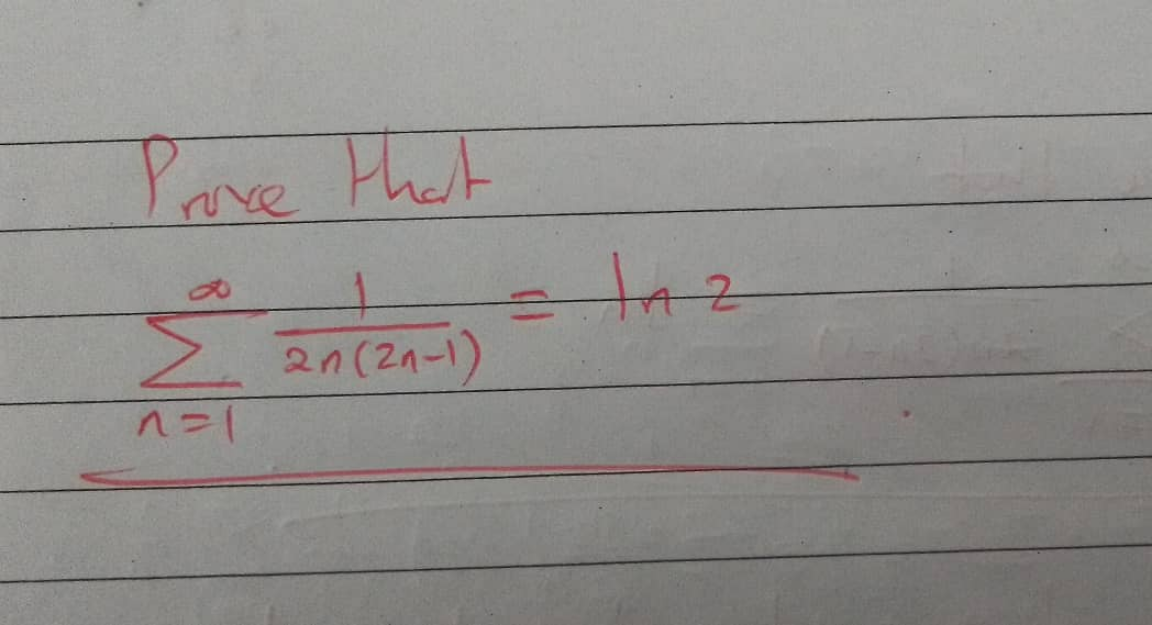 Prove that
∞
∑ 1/(2n(2n-1)) = ln 2
n=1